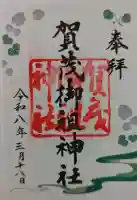 奉拝
賀茂御祖神社
令和八年三月十八日